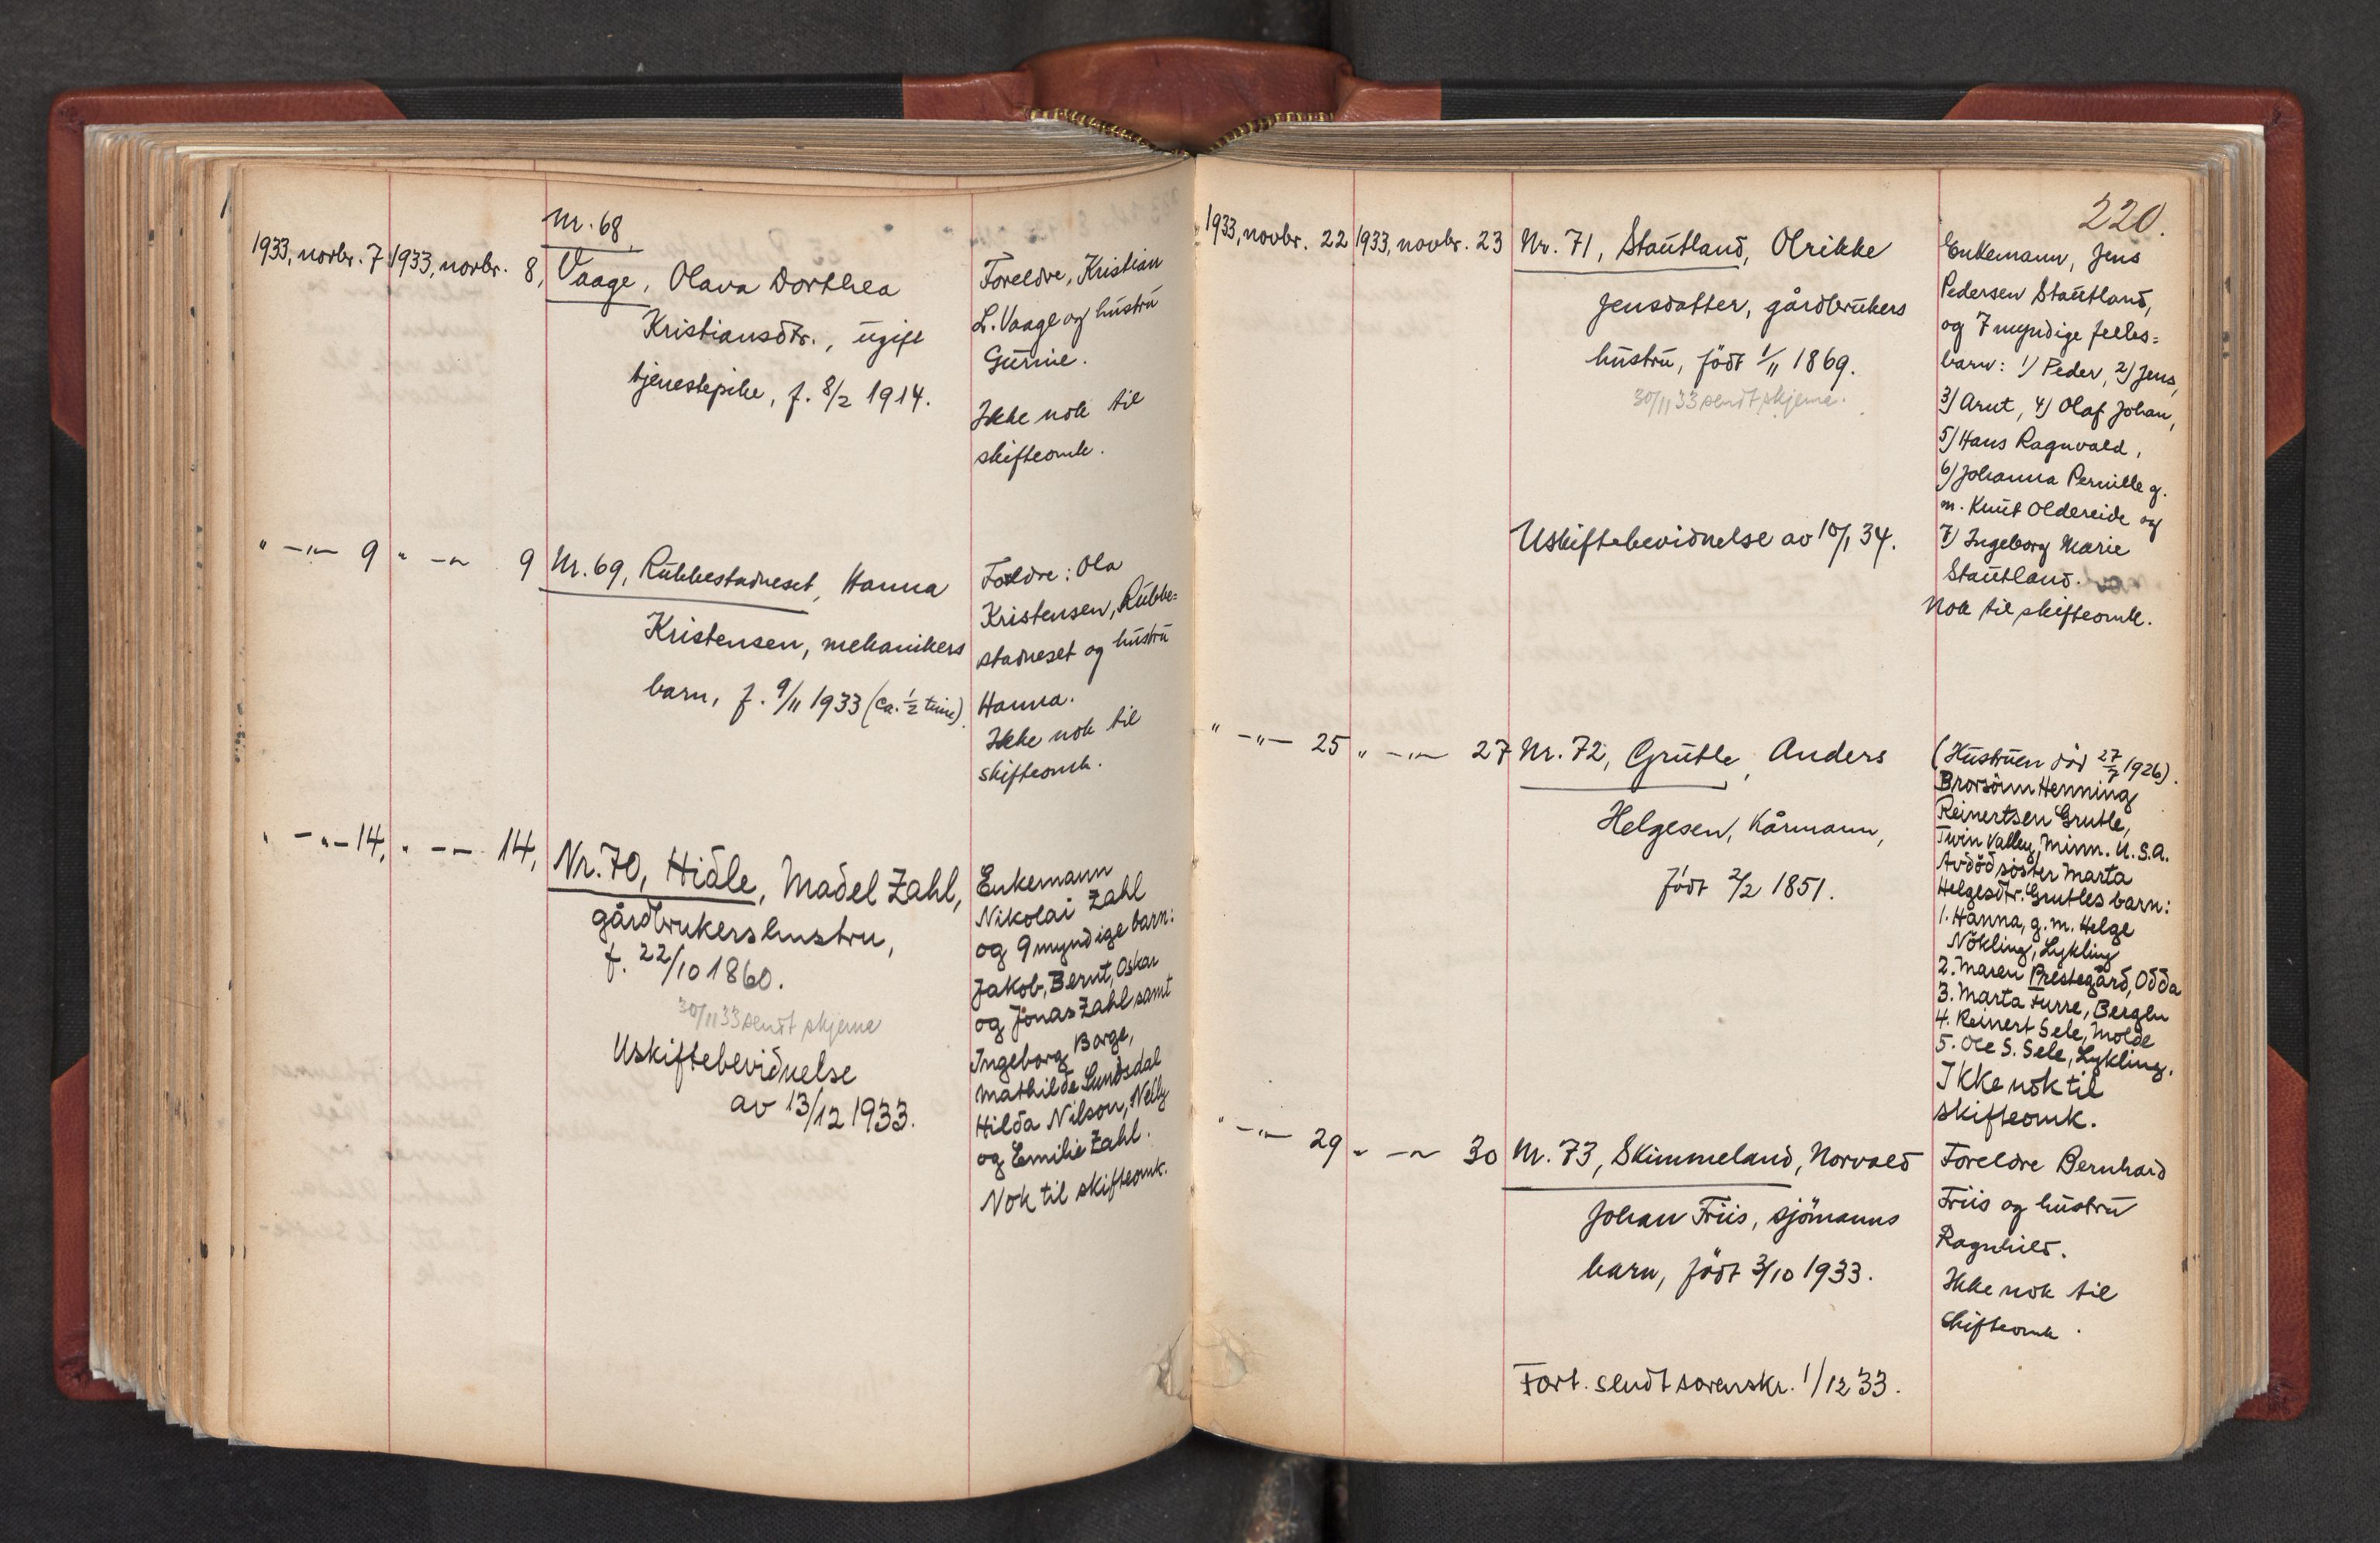 Nr. 68
1933, novbr. 7 1933, novbr. 8, Vaage, Olava Dorthea
Kristiansdtr., ugift
tjenestepike, f. 8/2 1914.
Foreldre, Kristian
L. Vaage og hustru
Gurine.
Ikke nok til
skifteomk.
" -"- 9 " -"- 9 Nr. 69, Rubbestadneset, Hanna
Kristensen, mekanikers
barn, f. 9/11 1933 (ca. 1/2 time).
Foreldre: Ola
Kristensen, Rubbe=
stadneset og hustru
Hanna.
Ikke nok til
skifteomk.
" -"- 14, " -"- 14, Nr. 70, Hidle, Madel Zahl,
gårdbrukershustru,
f. 22/10 1860.
30/11 33 sendt skjema
Uskiftebevidnelse
av 13/12 1933.
Enkemann
Nikolai Zahl
og 9 myndige barn:
Jakob, Bernt, Oskar
og Jonas Zahl samt
Ingeborg Borge,
Mathilde Sundsdal
Hilda Nilson, Nelly
og Emilie Zahl.
Nok til skifteomk.
220.
1933, novbr. 22 1933, novbr. 23 Nr. 71, Stautland, Olrikke
Jensdatter, gårdbrukers
hustru, født 1/11 1869.
30/11 33 sendt skjema.
Uskiftebevidnelse av 10/1 34.
Enkemann, Jens
Pedersen Stautland,
og 7 myndige felles=
barn: 1) Peder, 2) Jens,
3) Arnt, 4) Olaf Johan,
5) Hans Ragnvald,
6) Johanna Pernille g.
m. Knut Oldereide og
7) Ingeborg Marie
Stautland.
Nok til skifteomk.
" -"- 25 " -"- 27 Nr. 72, Grutle, Anders
Helgesen, kårmann,
født 2/2 1851.
(Hustruen død 27/7 1926).
Brorsönn Henning
Reinertsen Grutle,
Twin Valley, Minn. U.S.A.
Avdöd söster Marta
Helgesdtr. Grutles barn:
1. Hanna, g.m. Helge
Nökling, Lykling
2. Maren Prestegård, Odda
3. Marta Furre, Bergen
4. Reinert Sele, Molde
5. Ole S. Sele, Lykling.
Ikke nok til
skifteomk.
" -"- 29 " -"- 30 Nr. 73, Skimmeland, Norvald
Johan Friis, sjömanns
barn, født 3/10 1933.
Foreldre Bernhard
Friis og hustru
Ragnhild.
Ikke nok til
skifteomk.
Fort. sendt sorenskr. 1/12 33.